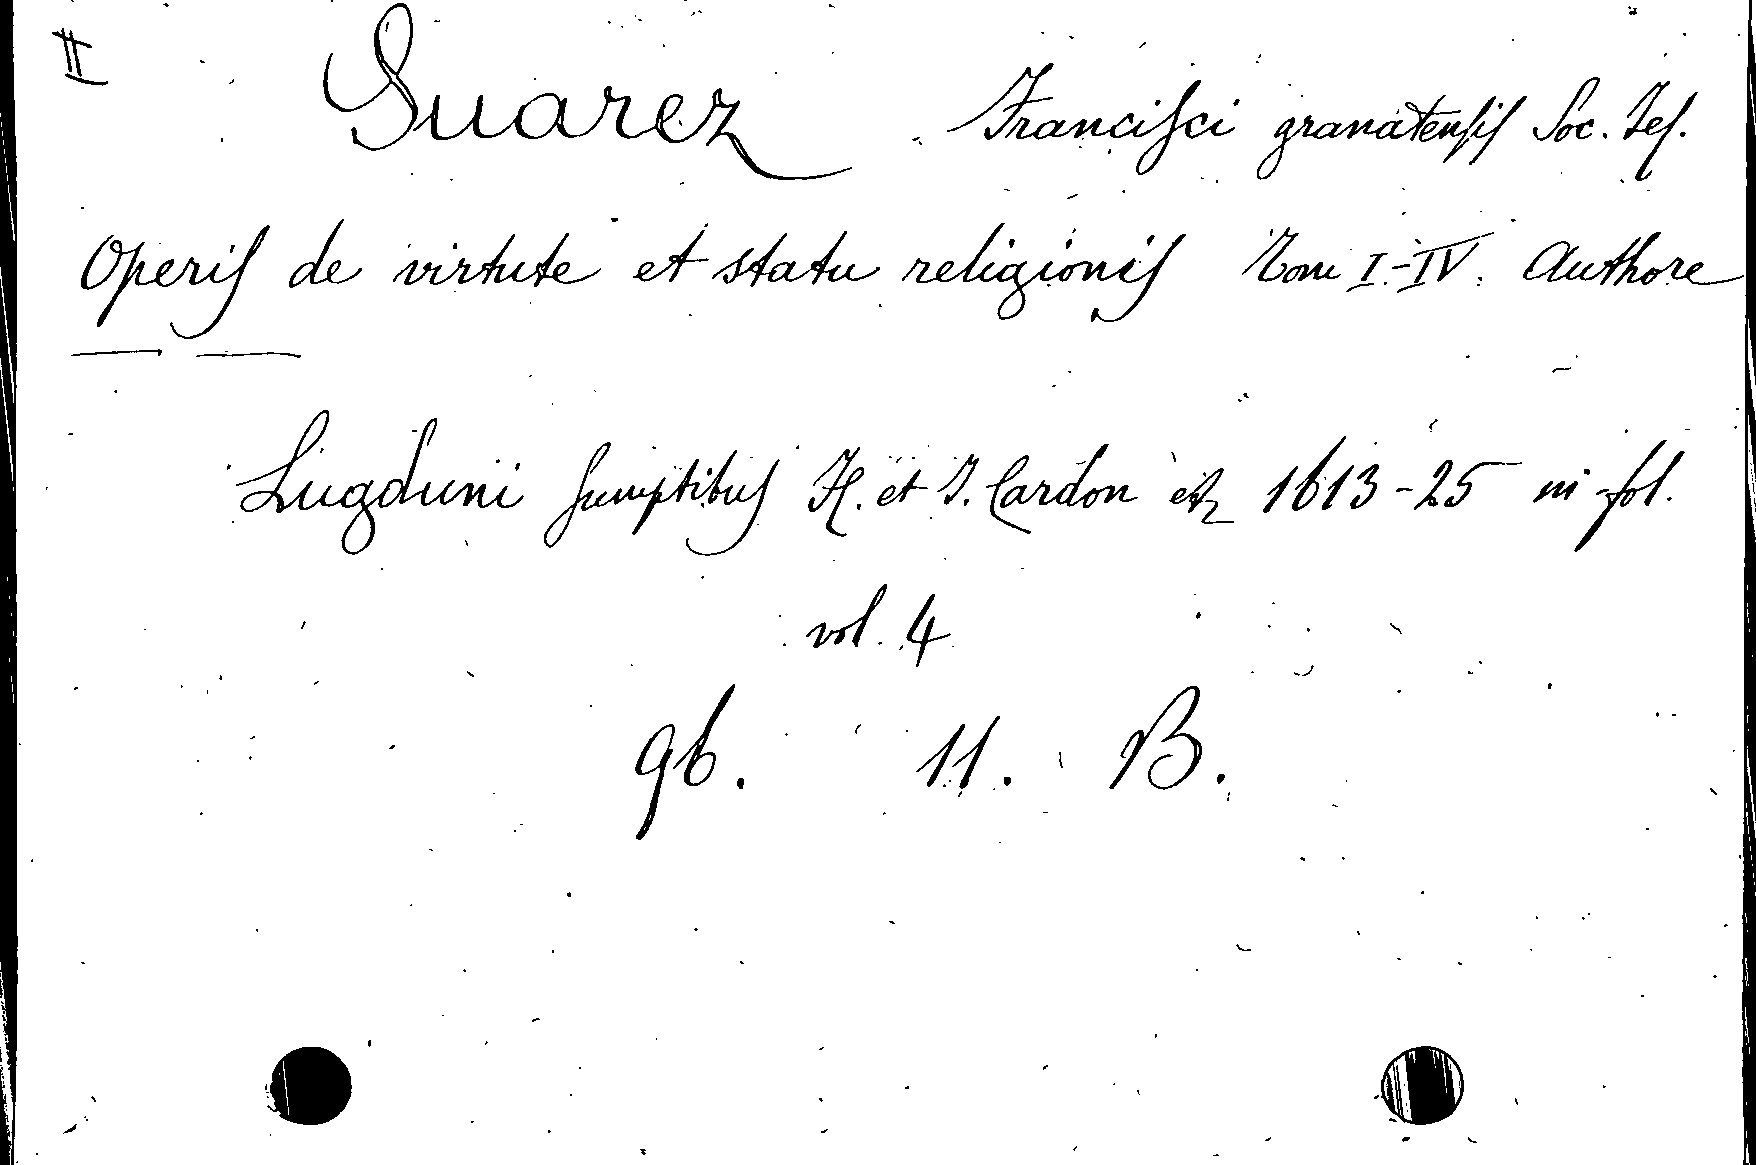 II
Suarez Francisci granatensis Soc. Jes.
Operis de virtute et statu religionis Tomi I-IV. Authore
— —
Lugduni sumptibus H. et J. Cardon etz 1613-25 in-fol.
vol. 4
96. 11. B.